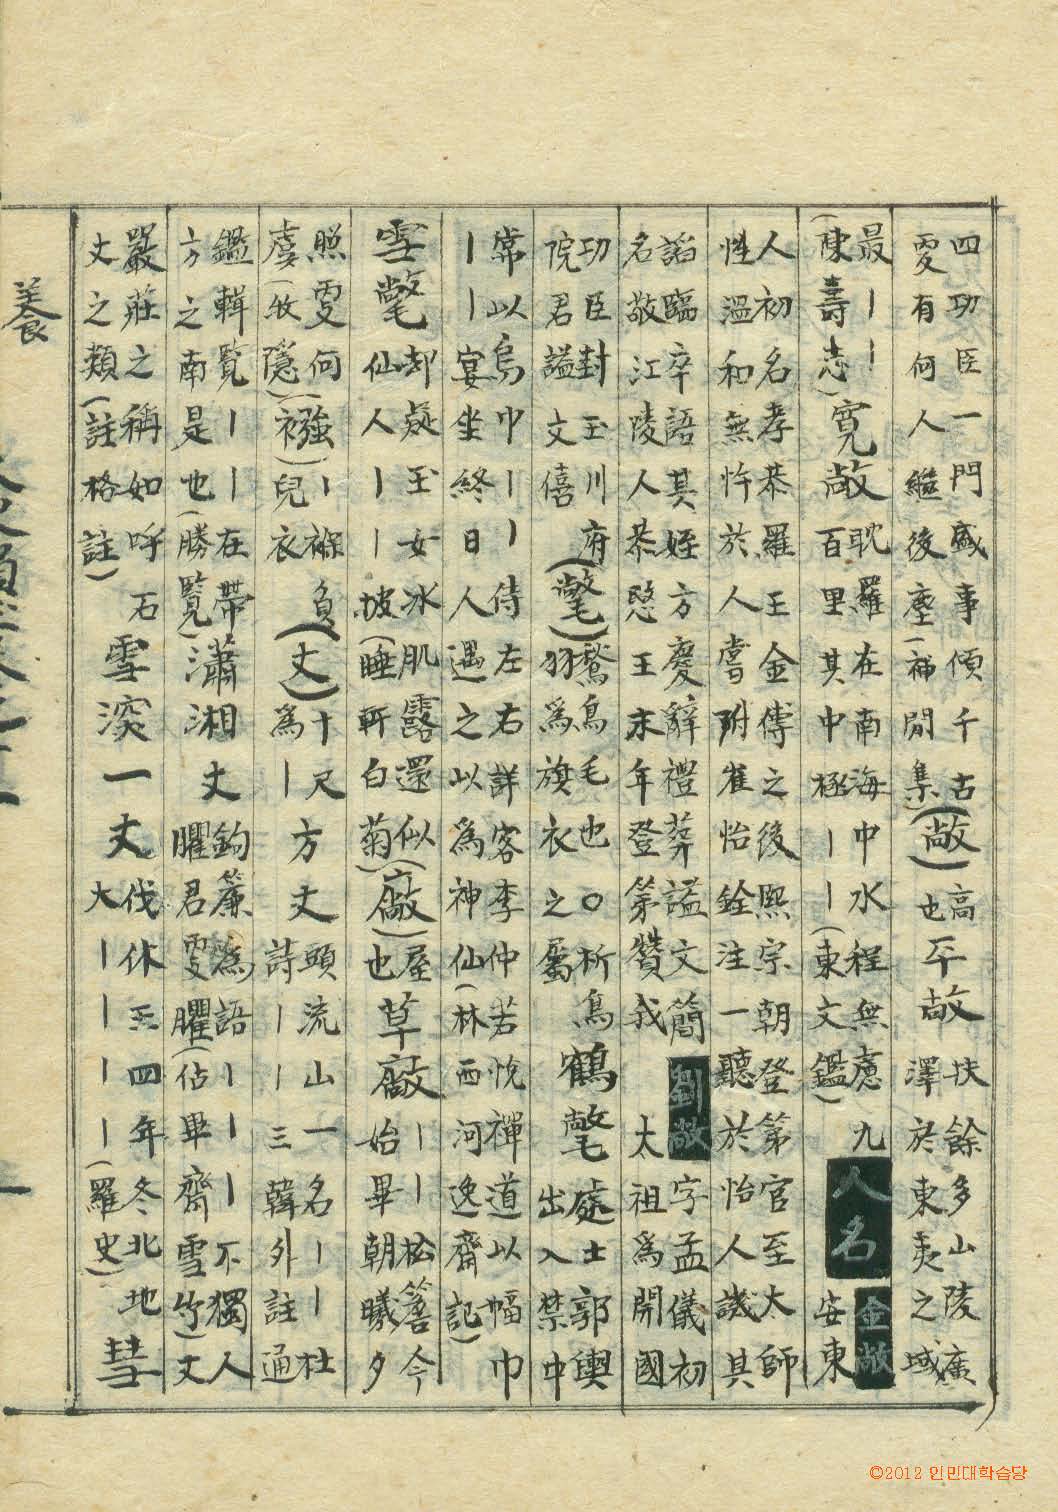 四功臣一門盛事傾千古
雯有何人繼後塵(補閒集)
(敞)高也平敞
扶餘多山陵廣
澤於東夷之域
最丨丨
(陳壽志)
寛敞
耽羅在南海中水程無慮九
百里其中極丨丨(東文鑑)
人名
金敞
安東
人初名孝恭羅王金傅之後熙宗朝登第官至大師
性溫和無忤於人嘗附崔怡銓注一聽於怡人譏其
諂臨卒語其姪方慶辭禮葬謚文簡
劉敞
字孟儀初
名敞江陵人恭愍王末年登第贊我太祖爲開國
功臣封玉川府
院君謚文僖
(氅)
鶖鳥毛也○析鳥
羽爲旗衣之屬
鶴氅
處士郭輿
出入禁中
常以烏巾丨丨侍左右詳客李仲若悅禪道以幅巾
丨丨宴坐終日人遇之以爲神仙(林西河逸齋記)
雪氅
却疑玉女氷肌露還似
仙人丨丨坡(睡軒白菊)
(廠)屋也草廠
丨丨松簷今
始畢朝曦夕
照雯何
虞(牧隱)
(襁)
丨褓負
兒衣
(丈)
十尺
爲丨
方丈
頭流山一名丨丨杜
詩丨丨三韓外註通
鑑輯覽丨丨在帶
方之南是也(勝覽)
瀟湘丈
鉤簾爲語丨丨丨不獨人
臞君雯臞(佔畢齋雪竹)丈
嚴莊之稱如呼石
丈之類(註格註)
雪深一丈
伐休王四年冬北地
大丨丨丨丨(羅史)
彗
養
©2012 인민대학습당